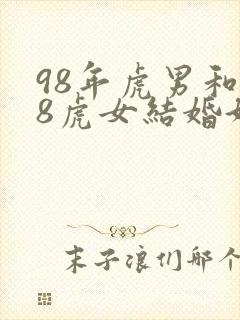 98年虎男和
8虎女結婚好
末子浪们那个